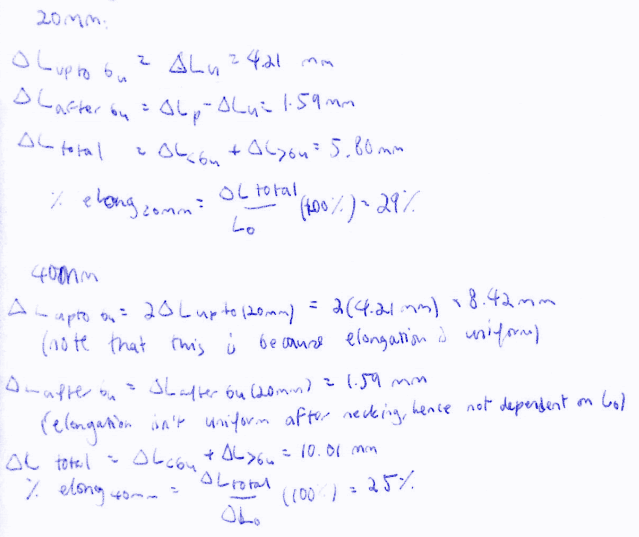 20mm:
ΔL up to σu = ΔLu = 4.21 mm
ΔL after σu = ΔLp - ΔLu = 1.59 mm
ΔL total = ΔL<σu + ΔL>σu = 5.80 mm
% elong 20mm = ΔL total / L0 (100%) = 29%
40mm
ΔL up to σu = 2ΔL up to (20mm) = 2(4.21 mm) = 8.42 mm
(note that this is because elongation is uniform)
ΔL after σu = ΔL after σu (20mm) = 1.59 mm
(elongation isn't uniform after necking, hence not dependent on L0)
ΔL total = ΔL<σu + ΔL>σu = 10.01 mm
% elong 40mm = ΔL total / ΔL0 (100%) = 25%